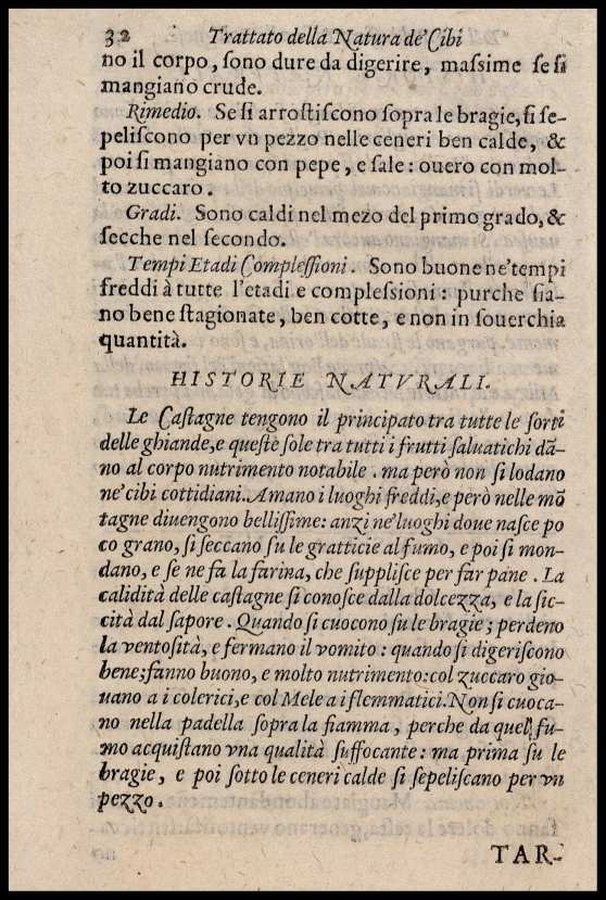 32 Trattato della Natura de' Cibi
no il corpo, ſono dure da digerire, maſſime ſe ſi
mangiano crude.
Rimedio. Se ſi arroſtiſcono ſopra le bragie, ſi ſe-
peliſcono per vn pezzo nelle ceneri ben calde, &
poi ſi mangiano con pepe, e ſale: ouero con mol-
to zuccaro.
Gradi. Sono caldi nel mezo del primo grado, &
ſecche nel ſecondo.
Tempi Etadi Compleſſioni. Sono buone ne' tempi
freddi à tutte l'etadi e complefsioni: purche ſia-
no bene ſtagionate, ben cotte, e non in ſouerchia
quantità.
HISTORIE NATVRALI.
Le Caſtagne tengono il principato tra tutte le ſorti
delle ghiande, e queſte ſole tra tutti i frutti ſaluatichi dā-
no al corpo nutrimento notabile. ma però non ſi lodano
ne' cibi cottidiani. Amano i luoghi freddi, e però nelle mō
tagne diuengono belliſſime: anzi ne' luoghi doue naſce po
co grano, ſi ſeccano ſu le gratticie al fumo, e poi ſi mon-
dano, e ſe ne fa la farina, che ſuppliſce per far pane. La
calidità delle caſtagne ſi conoſce dalla dolcezza, e la ſic-
cità dal ſapore. Quando ſi cuocono ſu le bragie; perdeno
la ventoſità, e fermano il vomito: quando ſi digeriſcono
bene; fanno buono, e molto nutrimento: col zuccaro gio-
uano a i colerici, e col Mele a i flemmatici. Non ſi cuoca-
no nella padella ſopra la fiamma, perche da quel fu-
mo acquiſtano vna qualità ſuffocante: ma prima ſu le
bragie, e poi ſotto le ceneri calde ſi ſepeliſcano per vn
pezzo.
TAR-